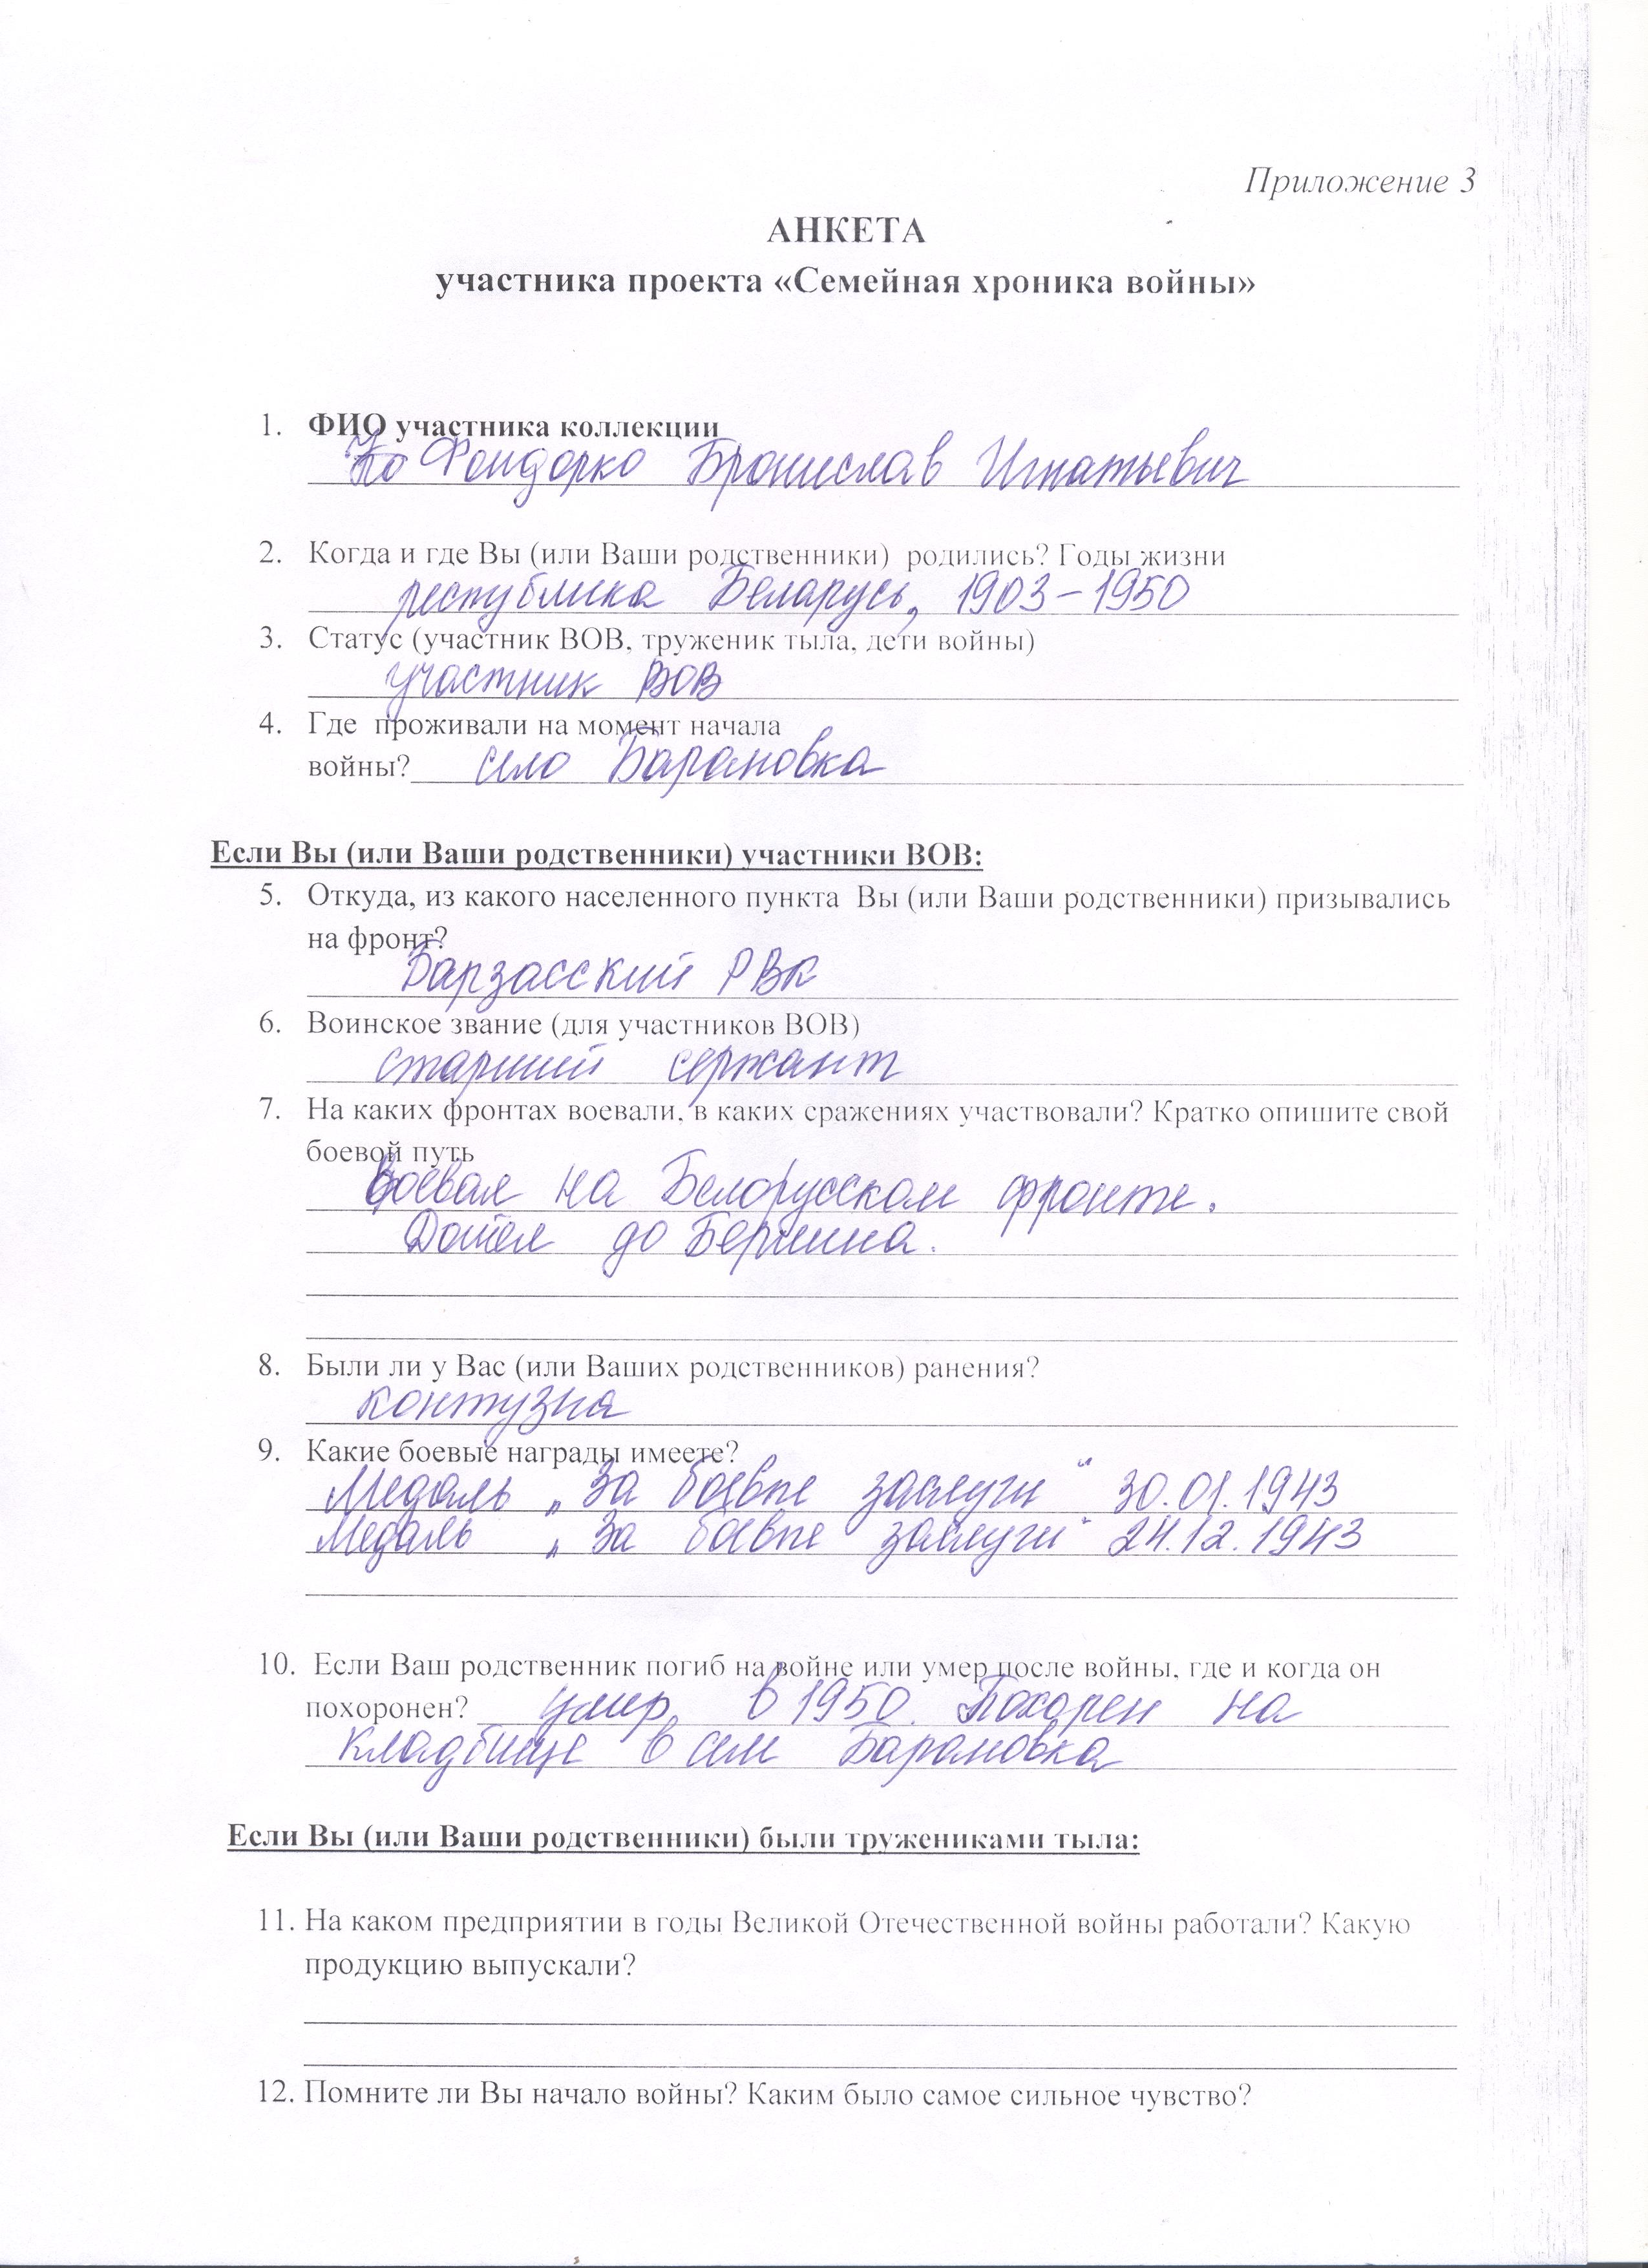 Приложение 3
АНКЕТА
участника проекта «Семейная хроника войны»
1. ФИО участника коллекции
Фендорко Бронислав Игнатьевич
2. Когда и где Вы (или Ваши родственники) родились? Годы жизни
республика Беларусь, 1903-1950
3. Статус (участник ВОВ, труженик тыла, дети войны)
участник ВОВ
4. Где проживали на момент начала
войны? село Барановка
Если Вы (или Ваши родственники) участники ВОВ:
5. Откуда, из какого населенного пункта Вы (или Ваши родственники) призывались
на фронт?
Барзасский РВК
6. Воинское звание (для участников ВОВ)
старший сержант
7. На каких фронтах воевали, в каких сражениях участвовали? Кратко опишите свой
боевой путь
Воевал на Белорусском фронте.
Дошел до Берлина.
8. Были ли у Вас (или Ваших родственников) ранения?
контузиа
9. Какие боевые награды имеете?
Медаль „За боевые заслуги“ 30.01.1943
Медаль „За боевые заслуги“ 24.12.1943
10. Если Ваш родственник погиб на войне или умер после войны, где и когда он
похоронен? умер в 1950. Похорен на
кладбище в селе Барановка
Если Вы (или Ваши родственники) были тружениками тыла:
11. На каком предприятии в годы Великой Отечественной войны работали? Какую
продукцию выпускали?
12. Помните ли Вы начало войны? Каким было самое сильное чувство?